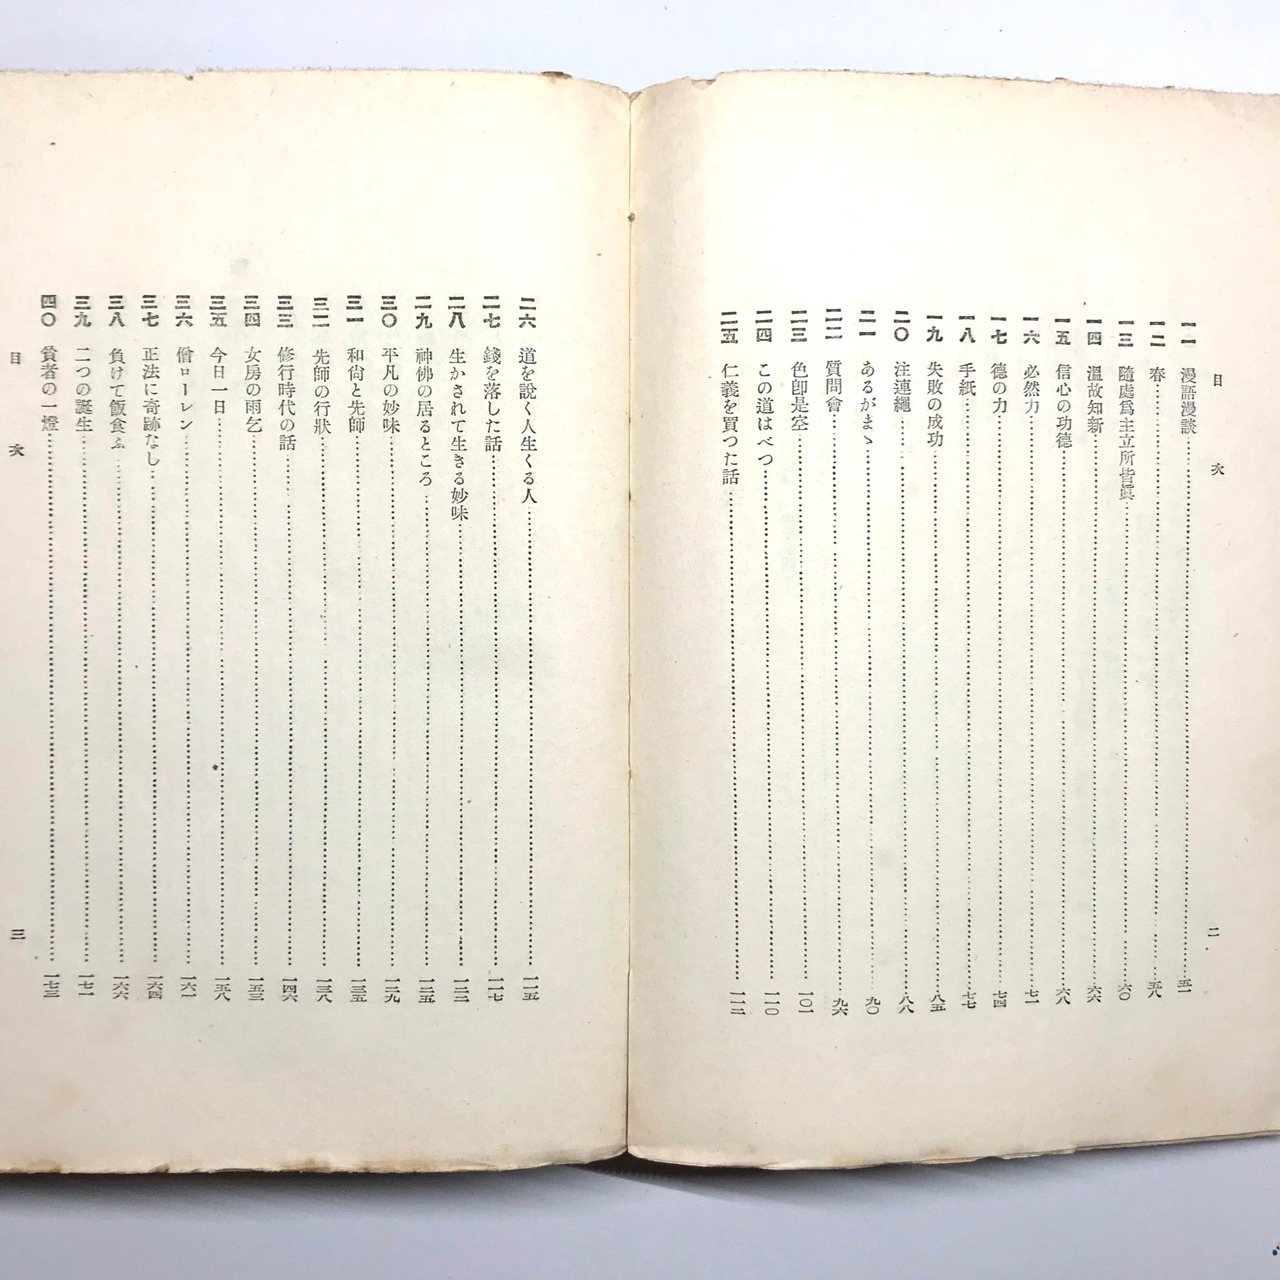 目次 二
一一 漫語漫談……五一
一二 春……五八
一三 隨處爲主立所皆眞……六〇
一四 溫故知新……六六
一五 信心の功德……六八
一六 必然力……七一
一七 德の力……七四
一八 手紙……七七
一九 失敗の成功……八五
二〇 注連繩……八八
二一 あるがまゝ……九〇
二二 質問會……九六
二三 色卽是空……一〇一
二四 この道はべつ……一一〇
二五 仁義を買つた話……一一二
二六 道を說く人生くる人……一一五
二七 錢を落した話……一一七
二八 生かされて生きる妙味……一二二
二九 神佛の居るところ……一二五
三〇 平凡の妙味……一二九
三一 和尙と先師……一三五
三二 先師の行狀……一三八
三三 修行時代の話……一四六
三四 女房の雨乞……一五三
三五 今日一日……一五八
三六 僧ローレン……一六一
三七 正法に奇跡なし……一六四
三八 負けて飯食ふ……一六六
三九 二つの誕生……一七一
四〇 貧者の一燈……一七三
目次 三